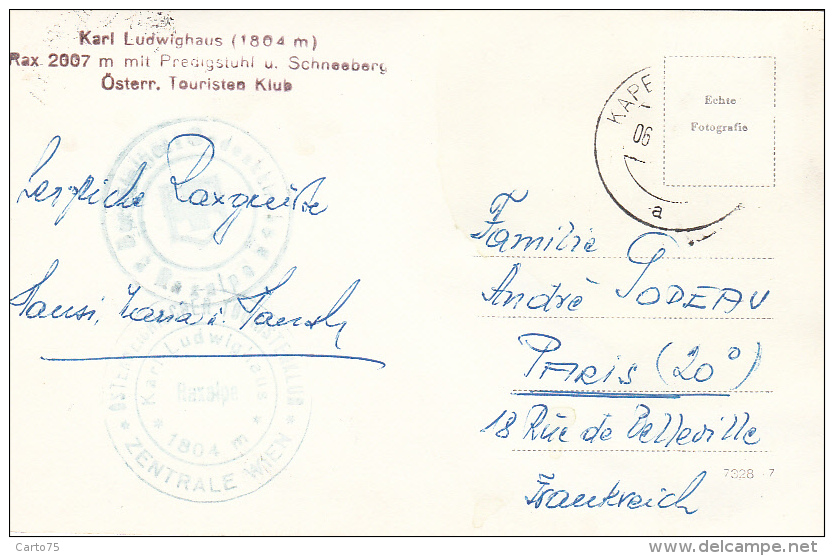 Karl Ludwighaus (1804 m)
Rax 2007 m mit Predigstuhl u. Schneeberg
Österr. Touristen Klub
Echte
Fotografie
KAPE
06
a
Herzliche Raxgrüße
Hansi, Maria u.
Familie
André GODEAU
PARIS (20°)
18 Rue de Belleville
7328 7
Frankreich
Raxalpe
Karl Ludwighaus
Raxalpe
* 1804 m *
* ZENTRALE WIEN *
Carto75
delcampe.net